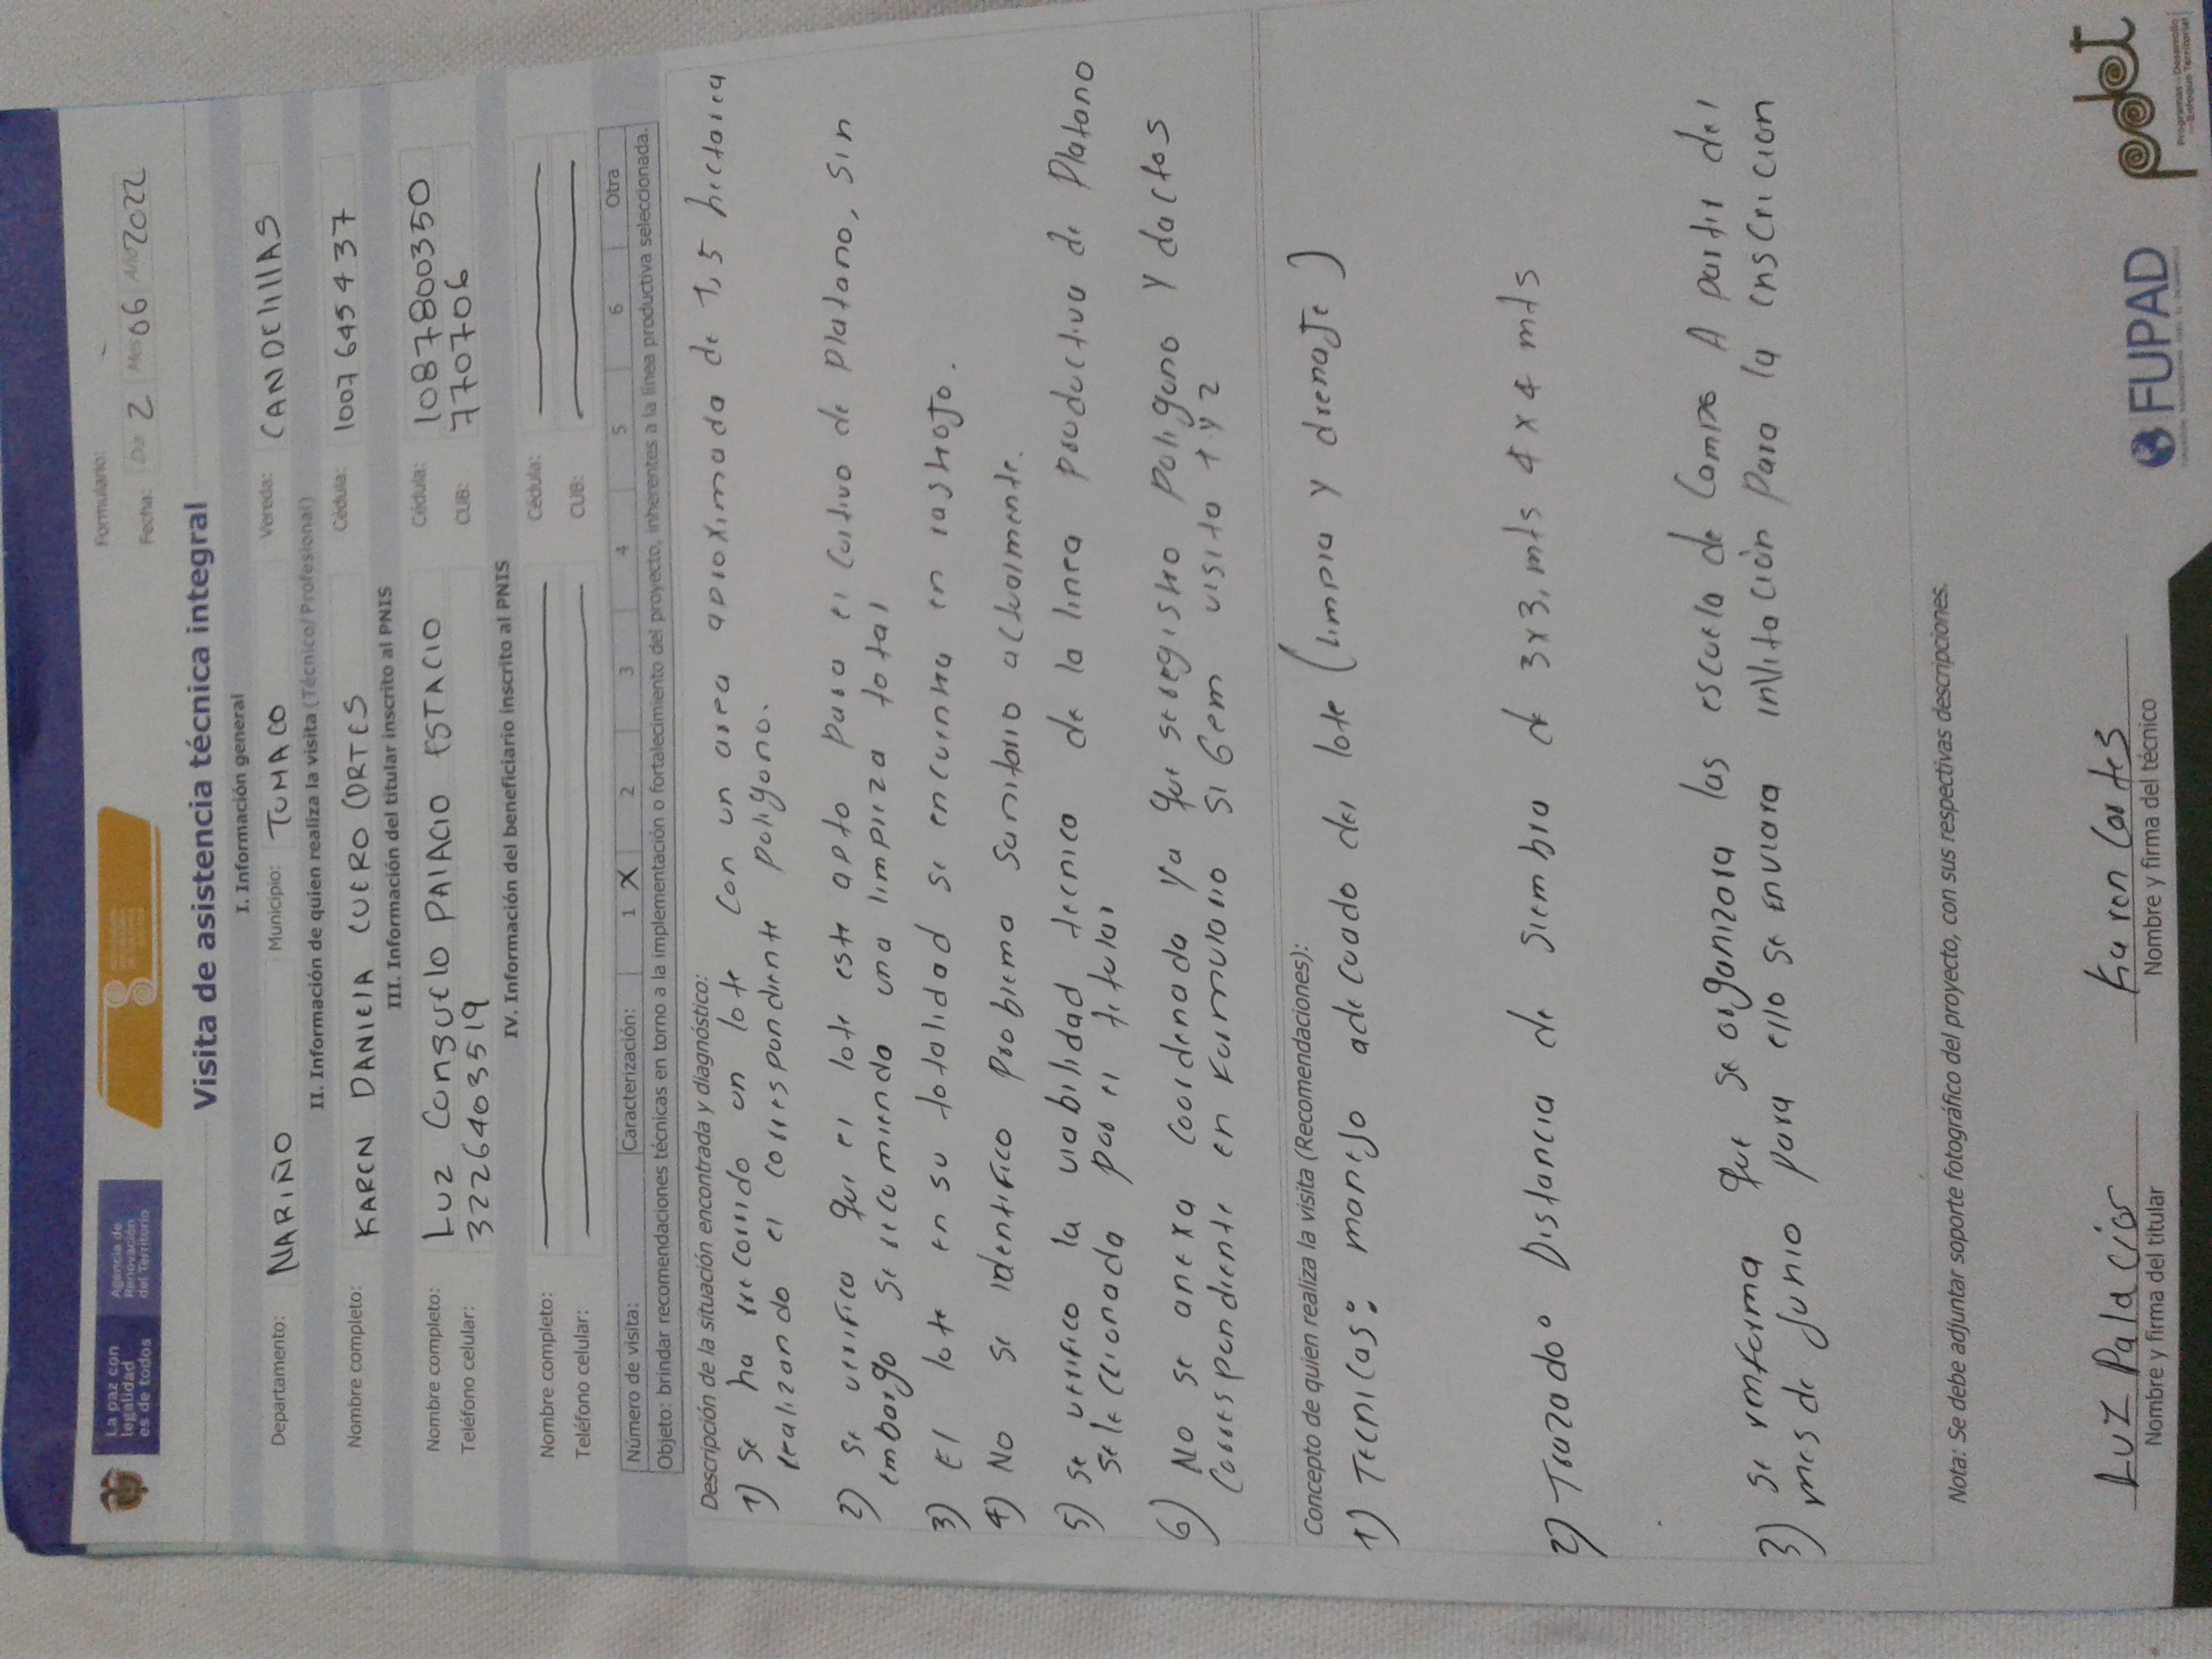 La paz con
legalidad
es de todos
Agencia de
Renovación
del Territorio
Formulario:
Fecha: Día 2 Mes 06 Año 2022
Visita de asistencia técnica integral
I. Información general
Departamento: NARIÑO Municipio: TUMACO Vereda: CANDElillAS
II. Información de quien realiza la visita (Técnico/Profesional)
Nombre completo: KAREN DANIELA CUERO CORTES Cédula: 1007645437
III. Información del titular inscrito al PNIS
Nombre completo: Luz Consuelo PALACIO ESTACIO Cédula: 1087800350
Teléfono celular: 3226403519 CUB: 770706
IV. Información del beneficiario inscrito al PNIS
Nombre completo: Cédula:
Teléfono celular: CUB:
Número de visita: Caracterización: 1 X 2 3 4 5 6 Otra
Objeto: brindar recomendaciones técnicas en torno a la implementación o fortalecimiento del proyecto, inherentes a la línea productiva seleccionada.
Descripción de la situación encontrada y diagnóstico:
1) Se ha recorrido un lote con un area aproximada de 1,5 hectarea
realizando el correspondiente poligono.
2) se verifica que el lote este apto para el cultivo de platano, sin
embargo se recomienda una limpieza total
3) El lote en su totalidad se encuentra en rastrojo.
4) No se identifico problema sanitario actualmente.
5) se verifico la viabilidad tecnico de la linea productiva de Platano
seleccionada por el titular
6) No se anexa coordenada ya que se registro poligono y dactos
correspondiente en formulario SiGem visita 1 y 2
Concepto de quien realiza la visita (Recomendaciones):
1) Tecnicas: manejo adecuado del lote (limpia y drenaje)
2) Trazado: Distancia de siembra de 3x3, mts 4 x 4 mts
3) se informa que se organizara las escuela de campo A partir del
mes de Junio para ello se enviara invitación para la inscricion
Nota: Se debe adjuntar soporte fotográfico del proyecto, con sus respectivas descripciones.
Luz Palacios
Nombre y firma del titular
Karen Cortes
Nombre y firma del técnico
FUPAD
pdet
Programas de Desarrollo
con Enfoque Territorial